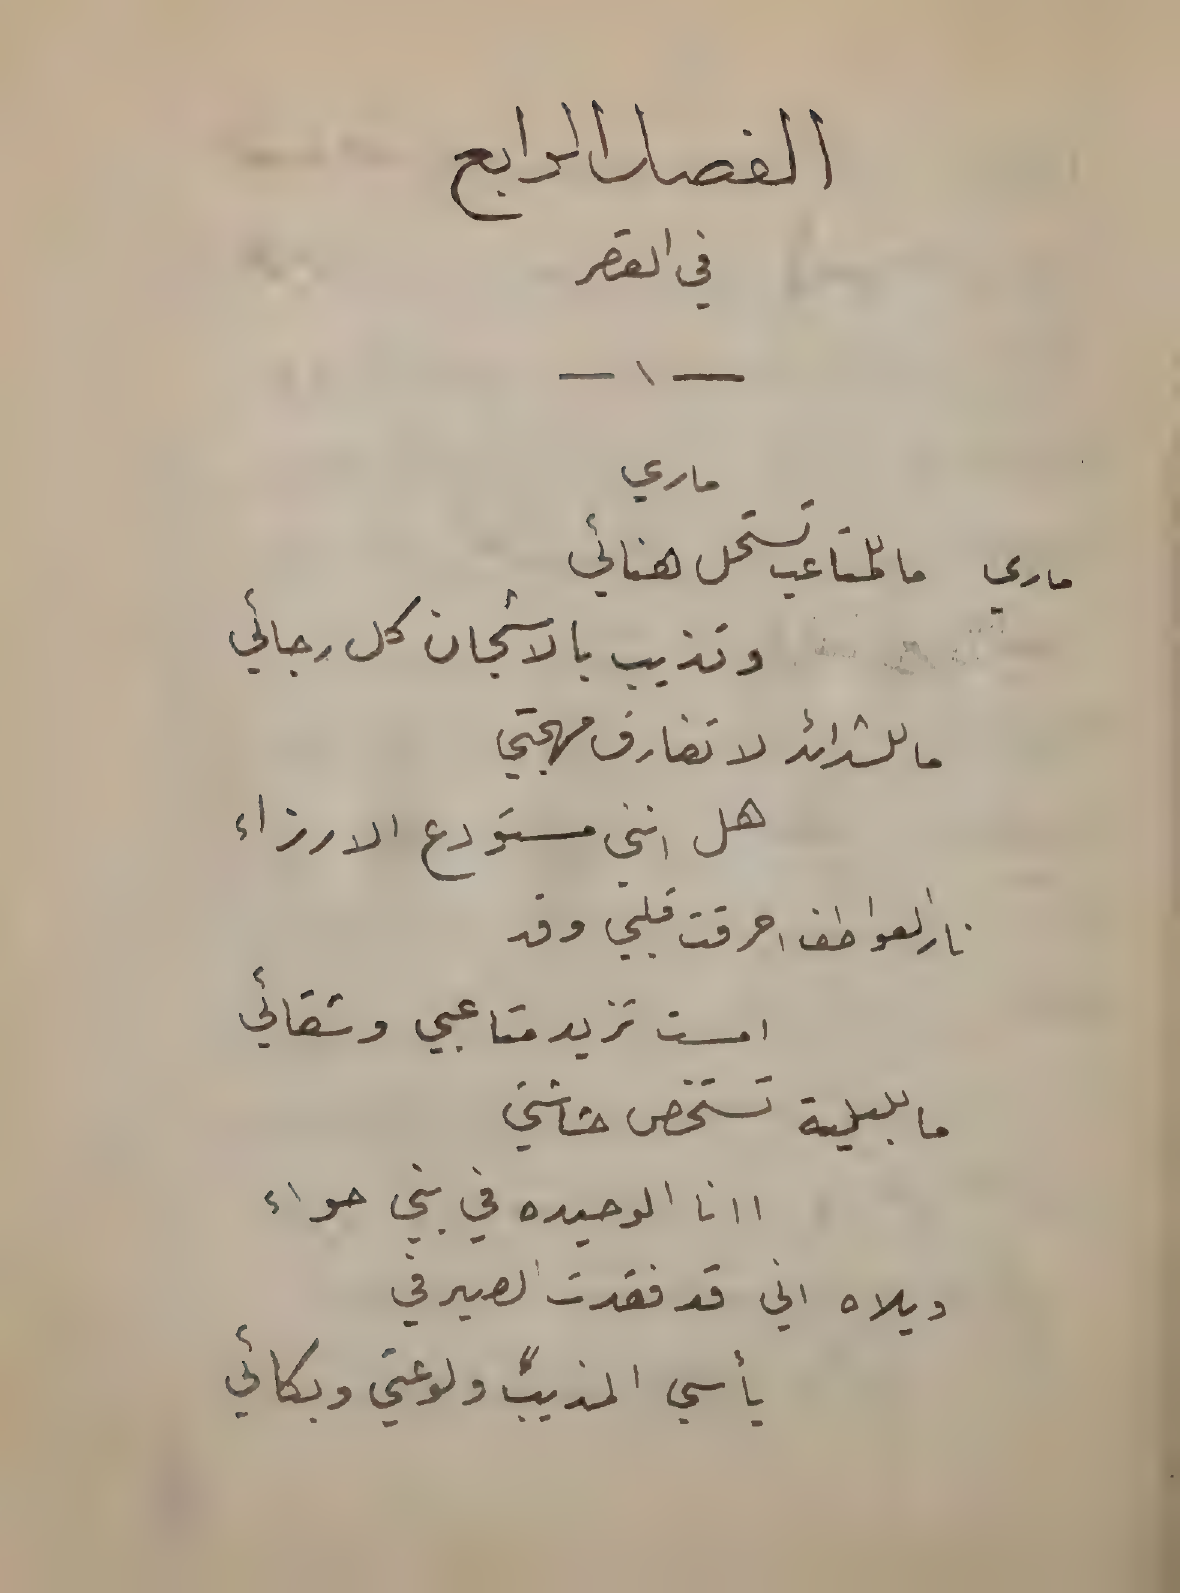 الفصل الرابع
في القصر
— ١ —
ماري
ماري ما للمتاعب تستحل هنائي
وتذيب بالاشجان كل رجائي
ما للشدائد لا تفارق مهجتي
هل انني مستودع الارزاء
نار العواطف احرقت قلبي وقد
امست تزيد متاعبي وشقائي
ما للبلية تستخص حشاشتي
اانا الوحيده في بني حواء
ويلاه اني قد فقدت الصبر في
يأسي المذيب ولوعتي وبكائي